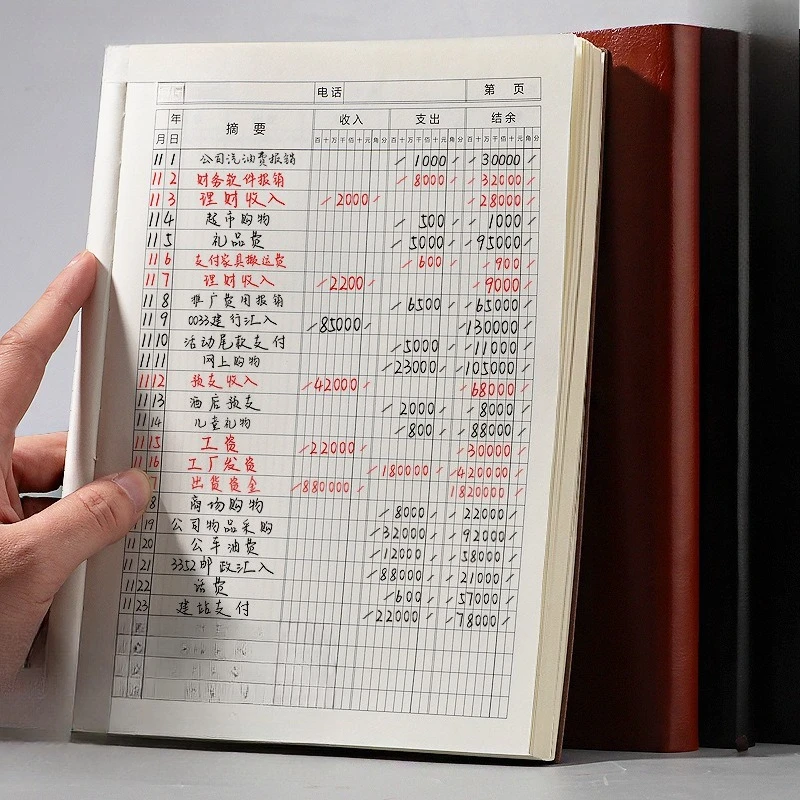 电话 第 页
年 摘 要 收入 支出 结余
月 日 百十万千佰十元角分 百十万千佰十元角分 百十万千佰十元角分
11 1 公司汽油费报销 /1000/ /30000/
11 2 财务软件报销 /8000/ /32000/
11 3 理财收入 /2000/ /28000/
11 4 超市购物 /500/ /1000/
11 5 礼品费 /5000/ /95000/
11 6 支付家具搬运费 /600/ /900/
11 7 理财收入 /2200/ /9000/
11 8 推广费用报销 /6500/ /65000/
11 9 0033建行汇入 /85000/ /130000/
11 10 活动尾款支付 /5000/ /11000/
11 11 网上购物 /23000/ /105000/
11 12 预支收入 /42000/ /68000/
11 13 酒店预支 /2000/ /8000/
11 14 儿童礼物 /800/ /88000/
11 15 工资 /22000/ /30000/
11 16 工厂发货 /180000/ /420000/
出货资金 /880000/ 1820000/
8 商场购物 /8000/ /22000/
19 公司物品采购 /32000/ /92000/
11 20 公车油费 /12000/ /58000/
11 21 3352邮政汇入 /88000/ /21000/
11 22 话费 /600/ /57000/
11 23 建站支付 /22000/ /78000/